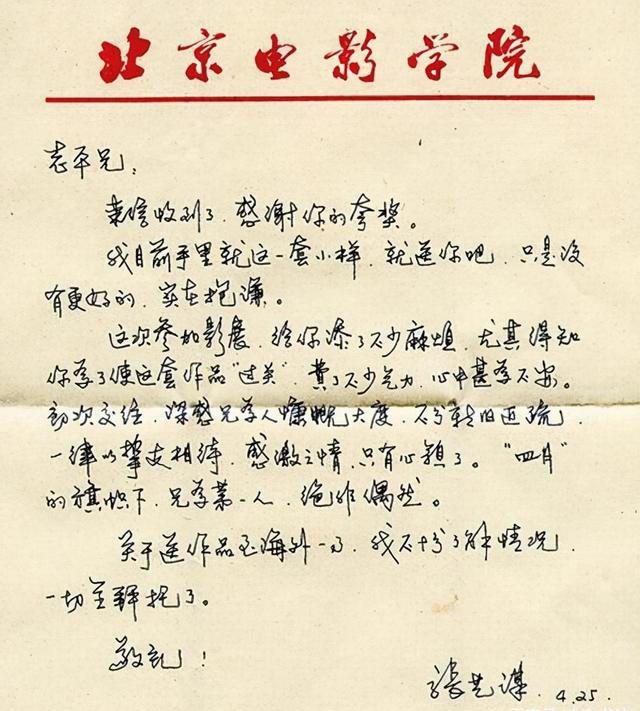 北京电影学院
志平兄：
来信收到了，感谢你的夸奖。
我目前手里就这一套小样，就送你吧，只是没
有更好的，实在抱谦。
这次参加影展，给你添了不少麻烦，尤其得知
你为了使这套作品“过关”，费了不少气力，心中甚为不安。
初次交往，深感兄为人慷慨大度，不分新旧近疏，
一律以挚友相待，感激之情，只有心领了。“四月”
的旗帜下，兄为第一人，绝非偶然。
关于送作品至海外一事，我不十分了解情况，
一切全拜托了。
敬礼！
张艺谋．4.25.